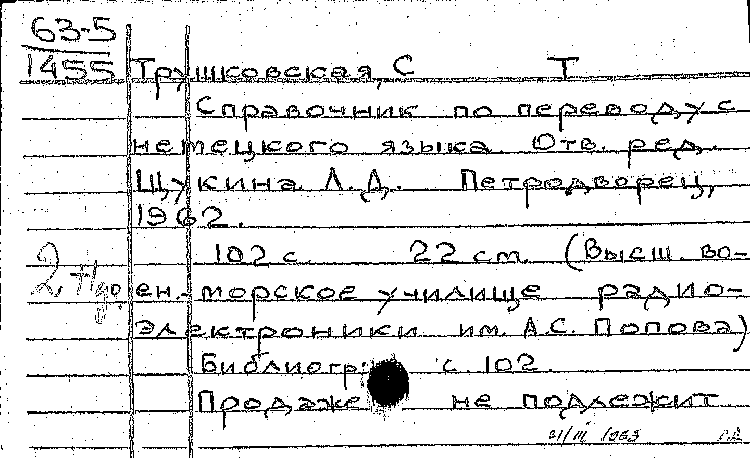 63-5
1455 Трушковская, С Т
Справочник по переводу с
немецкого языка. Отв. ред.
Щукина Л.Д. Петродворец,
1962.
102 с. 22 см. (Высш. во-
ен.-морское училище радио-
электроники им. А.С. Попова)
Библиогр: с. 102.
Продаже не подлежит
21/III 1963